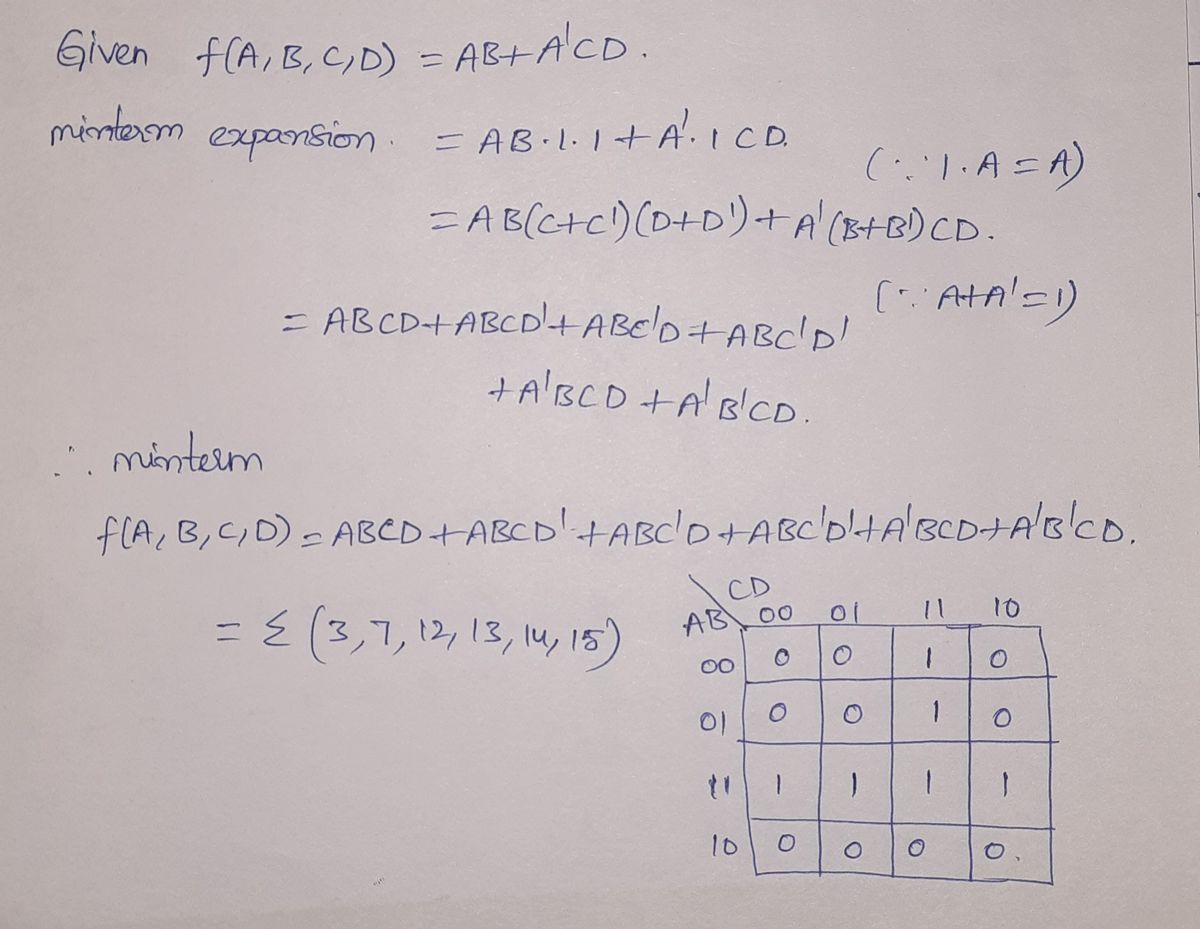 Given f(A, B, C, D) = AB + A'CD.
minterm expansion. = AB·1·1 + A'·1 CD.
(∵ 1·A = A)
= AB(C+C')(D+D') + A'(B+B')CD.
(∵ A+A'=1)
= ABCD + ABCD' + ABC'D + ABC'D'
+ A'BCD + A'B'CD.
∴ minterm
f(A, B, C, D) = ABCD + ABCD' + ABC'D + ABC'D' + A'BCD + A'B'CD.
= Σ (3, 7, 12, 13, 14, 15)
CD
AB 00 01 11 10
00 0 0 1 0
01 0 0 1 0
11 1 1 1 1
10 0 0 0 0.